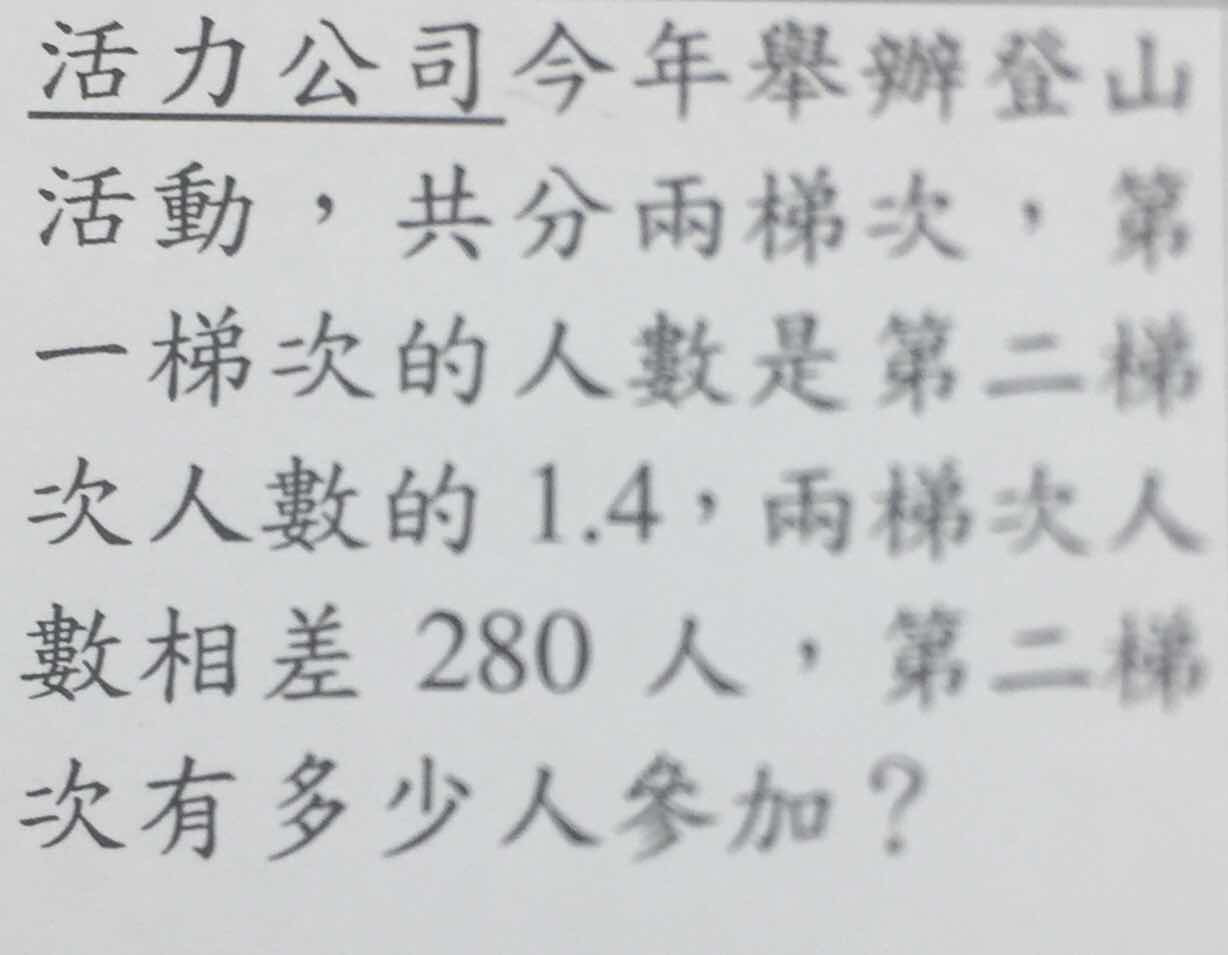 活力公司今年舉辦登山
活動，共分兩梯次，第
一梯次的人數是第二梯
次人數的 1.4，兩梯次人
數相差 280 人，第二梯
次有多少人參加？